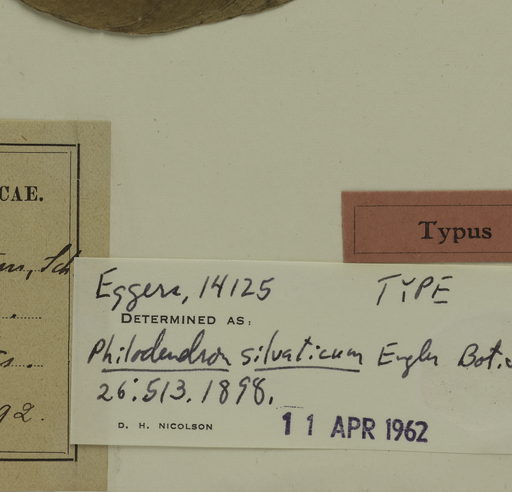 CAE.
Typus
Eggers, 14125 TYPE
DETERMINED AS:
Philodendron silvaticum Engler Bot.
26:513. 1898.
D. H. NICOLSON
11 APR 1962
92.